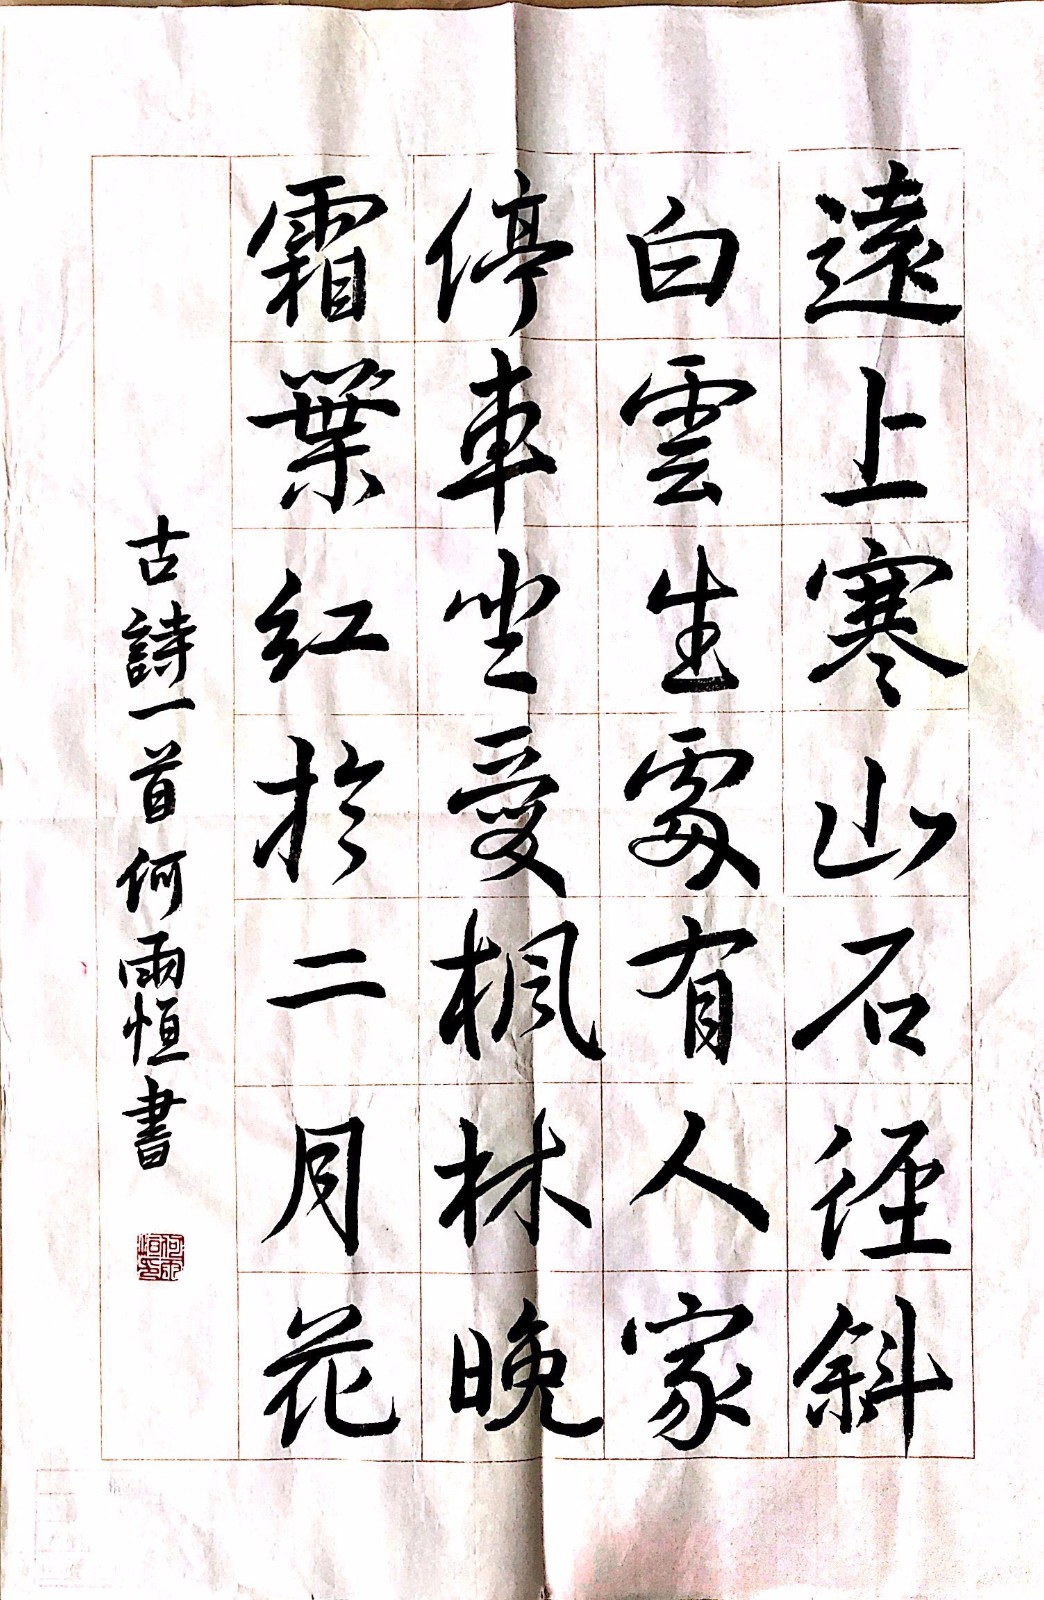 遠上寒山石徑斜
白雲生處有人家
停車坐愛楓林晚
霜葉紅於二月花
古詩一首何雨恒書